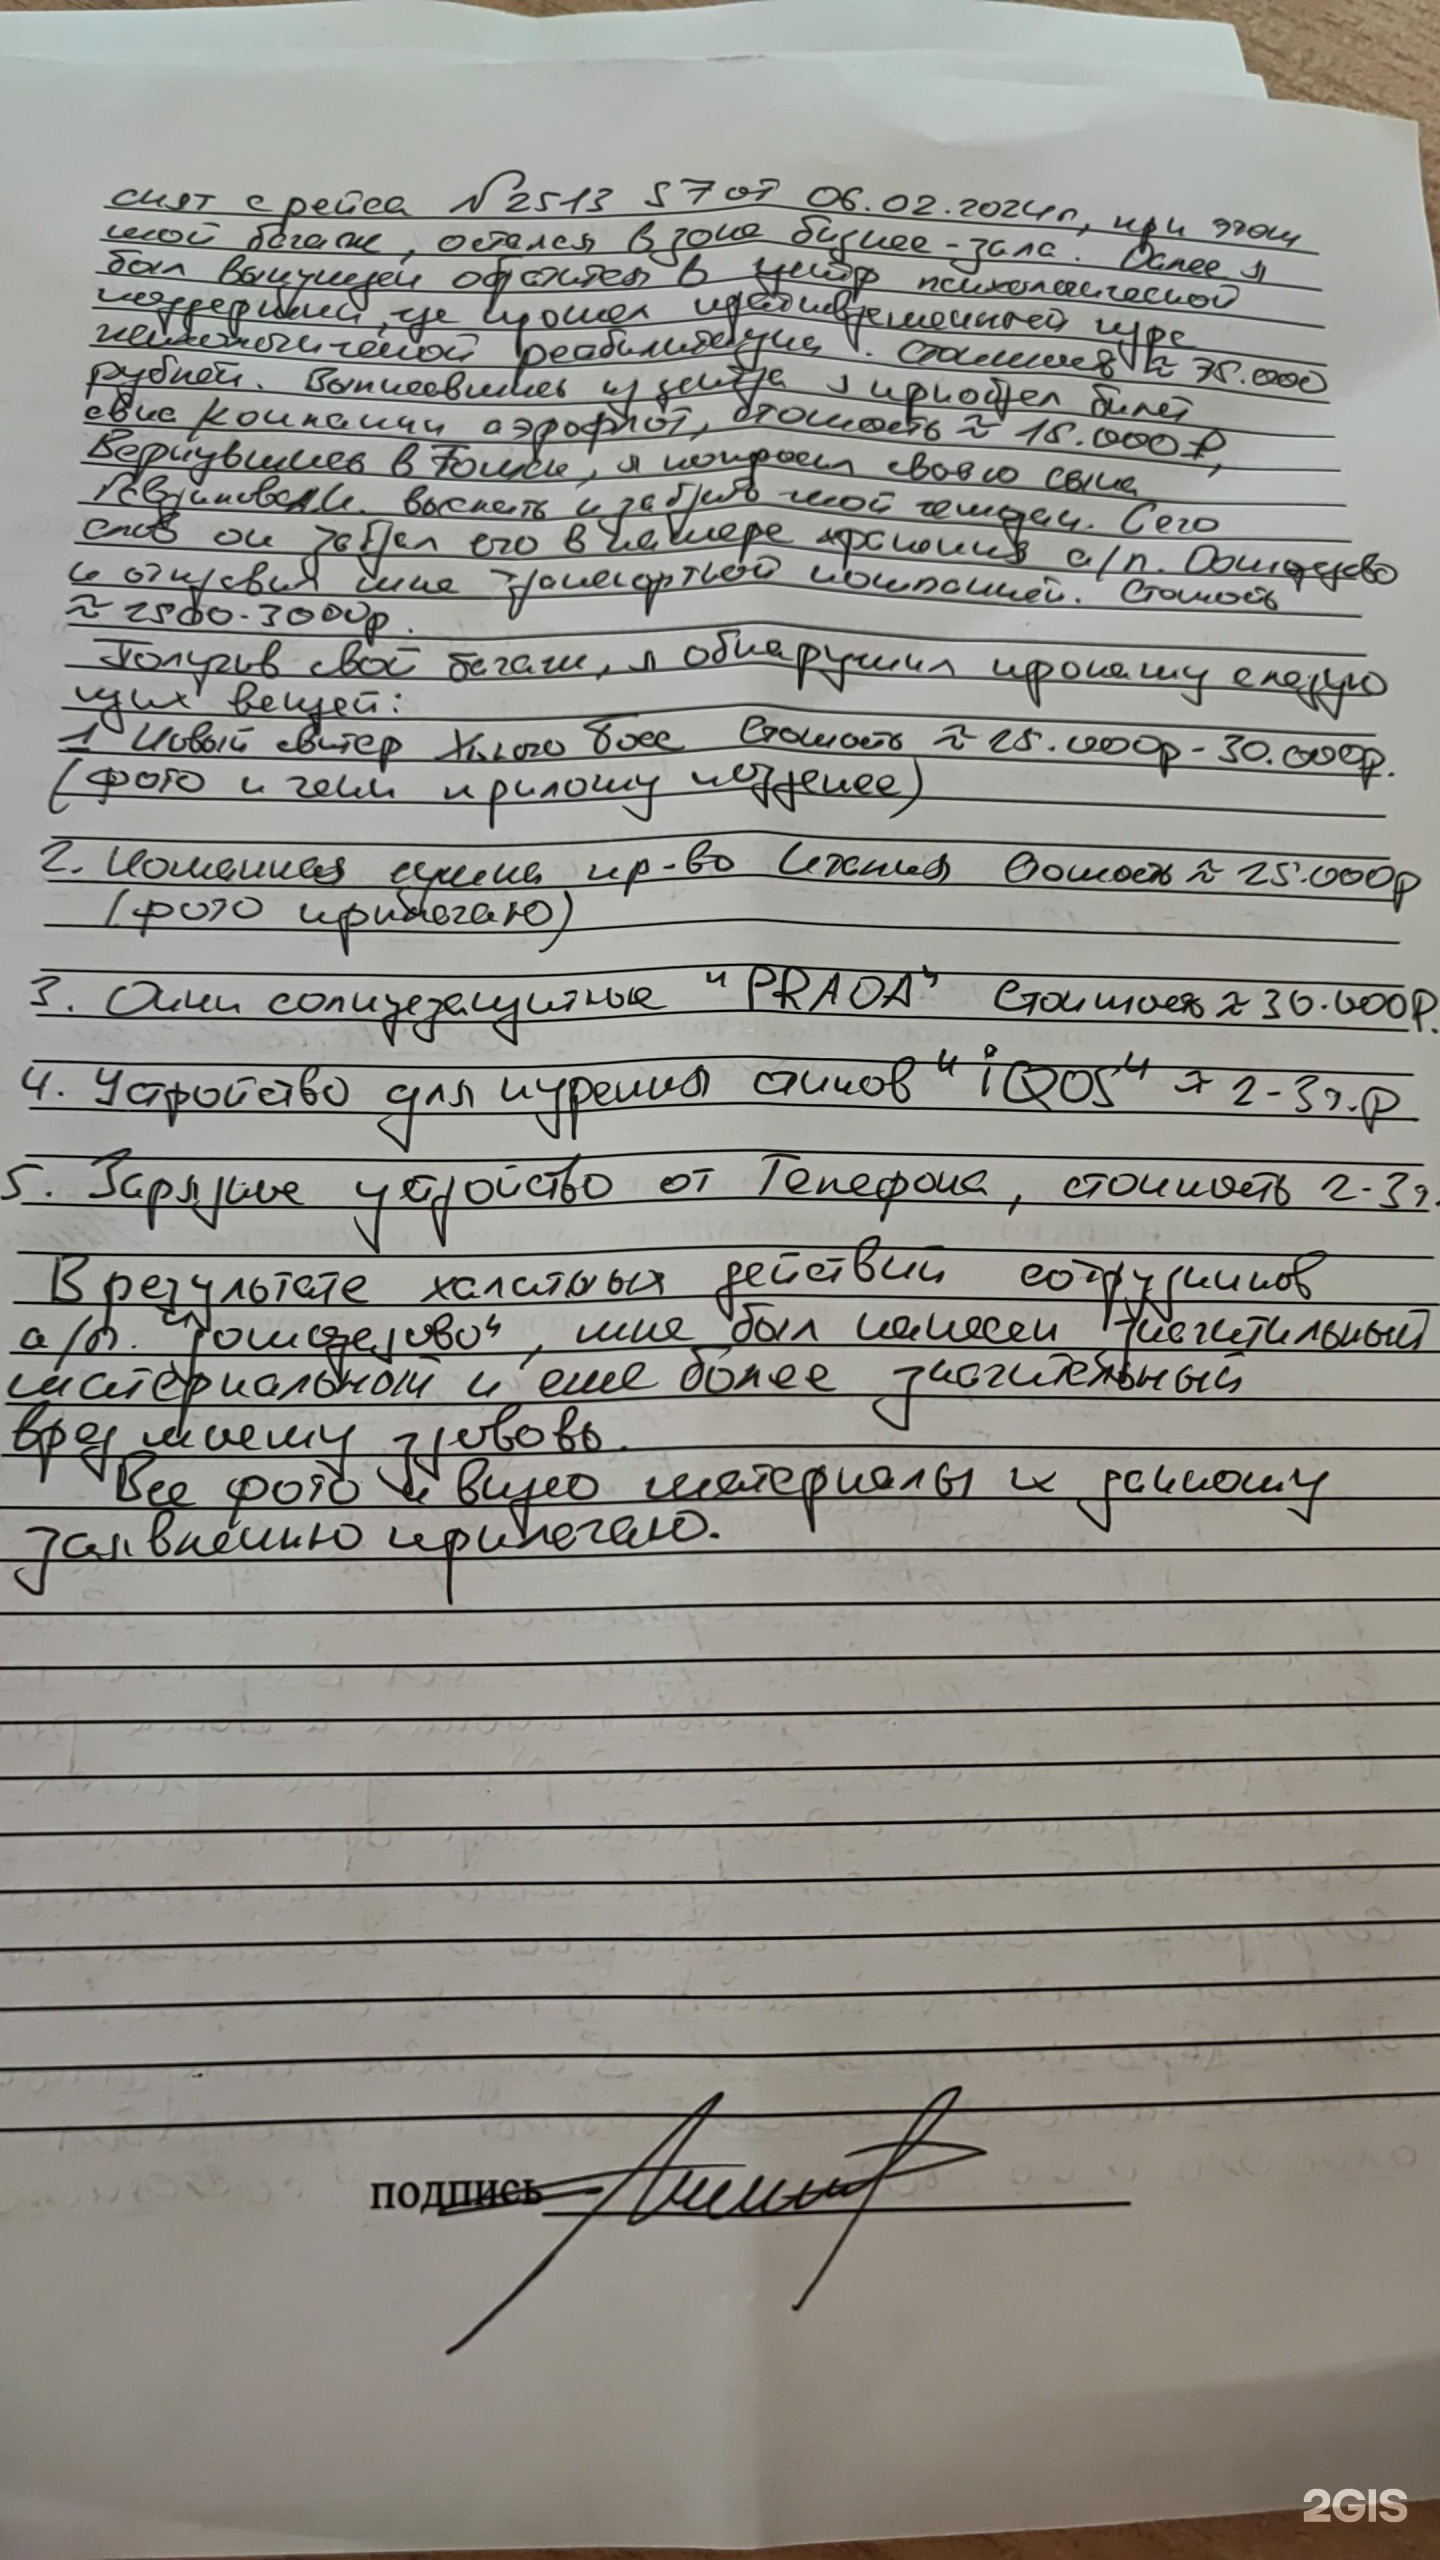 снят с рейса №2513 S7 от 06.02.2024г, при этом
мой багаж, остался в зоне бизнес-зала. Далее я
был вынужден обратится в центр психологической
поддержки, где прошел курс
психологической реабилитации. Стоимость ≈ 75.000
рублей. Выписавшись из центра я приобрел билет
авиа компании аэрофлот, стоимость ≈ 15.000₽,
Вернувшись в Томск, я попросил своего сына
выслать и забрать мой чемодан. С его
слов он забрал его в камере хранения а/п. Домодедово
и отправил мне транспортной компанией. Стоимость
≈ 2500-3000р.
Получив свой багаж, я обнаружил пропажу следую
щих вещей:
1 Новый свитер Хьюго босс Стоимость ≈ 25.000р-30.000р.
(фото и чеки приложу позднее)
2. Кожанная сумка пр-во Италия Стоимость ≈ 25.000р
(фото прилагаю)
3. Очки солнцезащитные "PRADA" Стоимость ≈ 30.000Р.
4. Устройство для курения стиков "iQOS" ≈ 2-3т.р
5. Зарядное устройство от Телефона, стоимость 2-3т.
В результате халатных действий сотрудников
а/п. "Домодедово", мне был нанесен значительный
материальный и еще более значительный
вред моему здоровью.
Все фото и видео материалы к данному
заявлению прилагаю.
подпись
2GIS